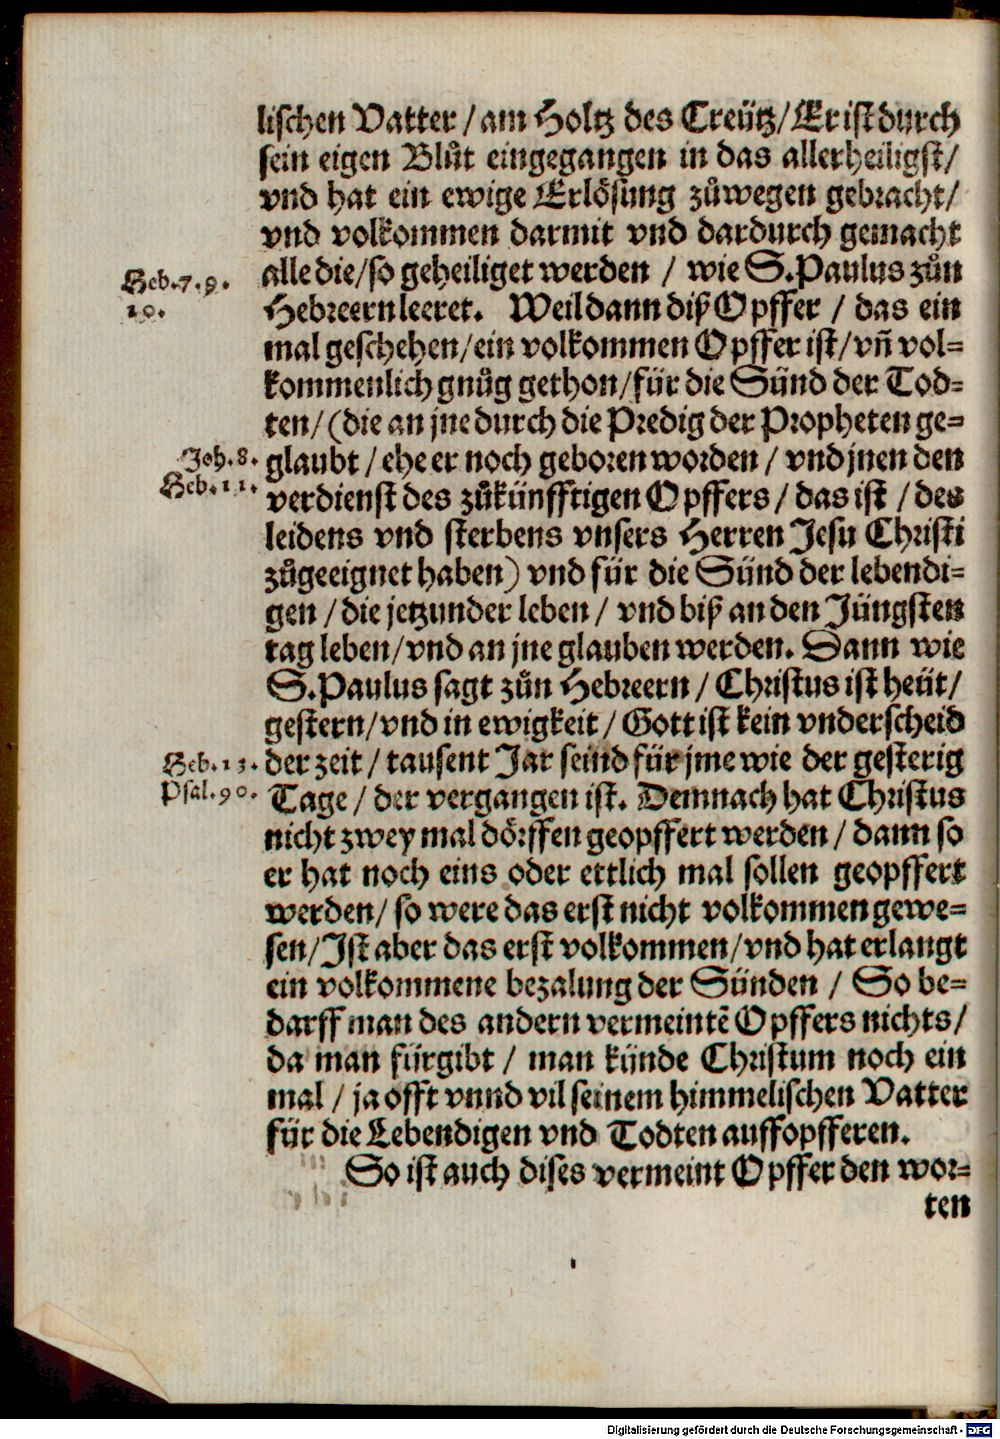 lischen Vatter / am Holtz des Creütz / Er ist durch
sein eigen Blůt eingegangen in das allerheiligst /
vnd hat ein ewige Erlösung zůwegen gebracht /
vnd volkommen darmit vnd dardurch gemacht
alle die / so geheiliget werden / wie S. Paulus zůn
Heb. 7. 9.
10.
Hebreern leeret. Weil dann diß Opffer / das ein
mal geschehen / ein volkommen Opffer ist / vñ vol=
kommenlich gnůg gethon / für die Sünd der Tod=
ten / (die an jne durch die Predig der Propheten ge=
Joh. 8.
glaubt / ehe er noch geboren worden / vnd jnen den
Heb. 11.
verdienst des zůkünfftigen Opffers / das ist / des
leidens vnd sterbens vnsers Herren Jesu Christi
zůgeeignet haben) vnd für die Sünd der lebendi=
gen / die jetzunder leben / vnd biß an den Jüngsten
tag leben / vnd an jne glauben werden. Dann wie
S. Paulus sagt zůn Hebreern / Christus ist heüt /
gestern / vnd in ewigkeit / Gott ist kein vnderscheid
Heb. 13.
der zeit / tausent Jar seind für jme wie der gesterig
Psal. 90.
Tage / der vergangen ist. Demnach hat Christus
nicht zwey mal dörffen geopffert werden / dann so
er hat noch eins oder ettlich mal sollen geopffert
werden / so were das erst nicht volkommen gewe=
sen / Ist aber das erst volkommen / vnd hat erlangt
ein volkommene bezalung der Sünden / So be=
darff man des andern vermeintē Opffers nichts /
da man fürgibt / man künde Christum noch ein
mal / ja offt vnnd vil seinem himmelischen Vatter
für die Lebendigen vnd Todten auffopfferen.
So ist auch dises vermeint Opffer den wor=
ten
Digitalisierung gefördert durch die Deutsche Forschungsgemeinschaft - DFG